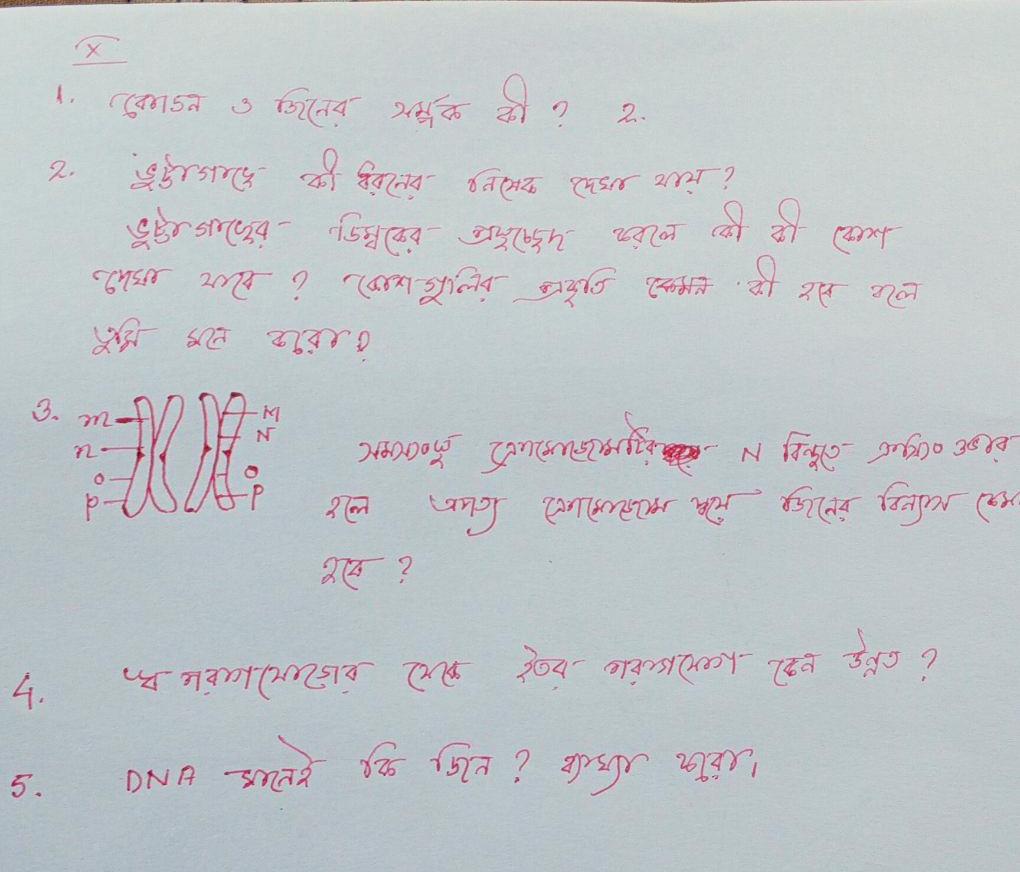 X
1. কোডন ও জিনের সর্ম্পক কী ? 2.
2. ভুট্টাগাছে কী ধরনের নিষেক দেখা যায় ?
ভুট্টাগাছের ডিম্বকের প্রস্থচ্ছেদ করলে কী কী কোশ
দেখা যাবে ? কোশগুলির প্রকৃতি কেমন কী হবে বলে
তুমি মনে করো ?
3. m M
n N
o o
p p
সমসংস্থ ক্রোমোজোমটির N বিন্দুতে ক্রসিং ওভার
হলে অপত্য ক্রোমোজোম দ্বয়ে জিনের বিন্যাস
হবে ?
4. স্ব পরাগযোগের থেকে ইতর পরাগযোগ কেন উন্নত ?
5. DNA মানেই কি জিন ? ব্যাখ্যা করো।